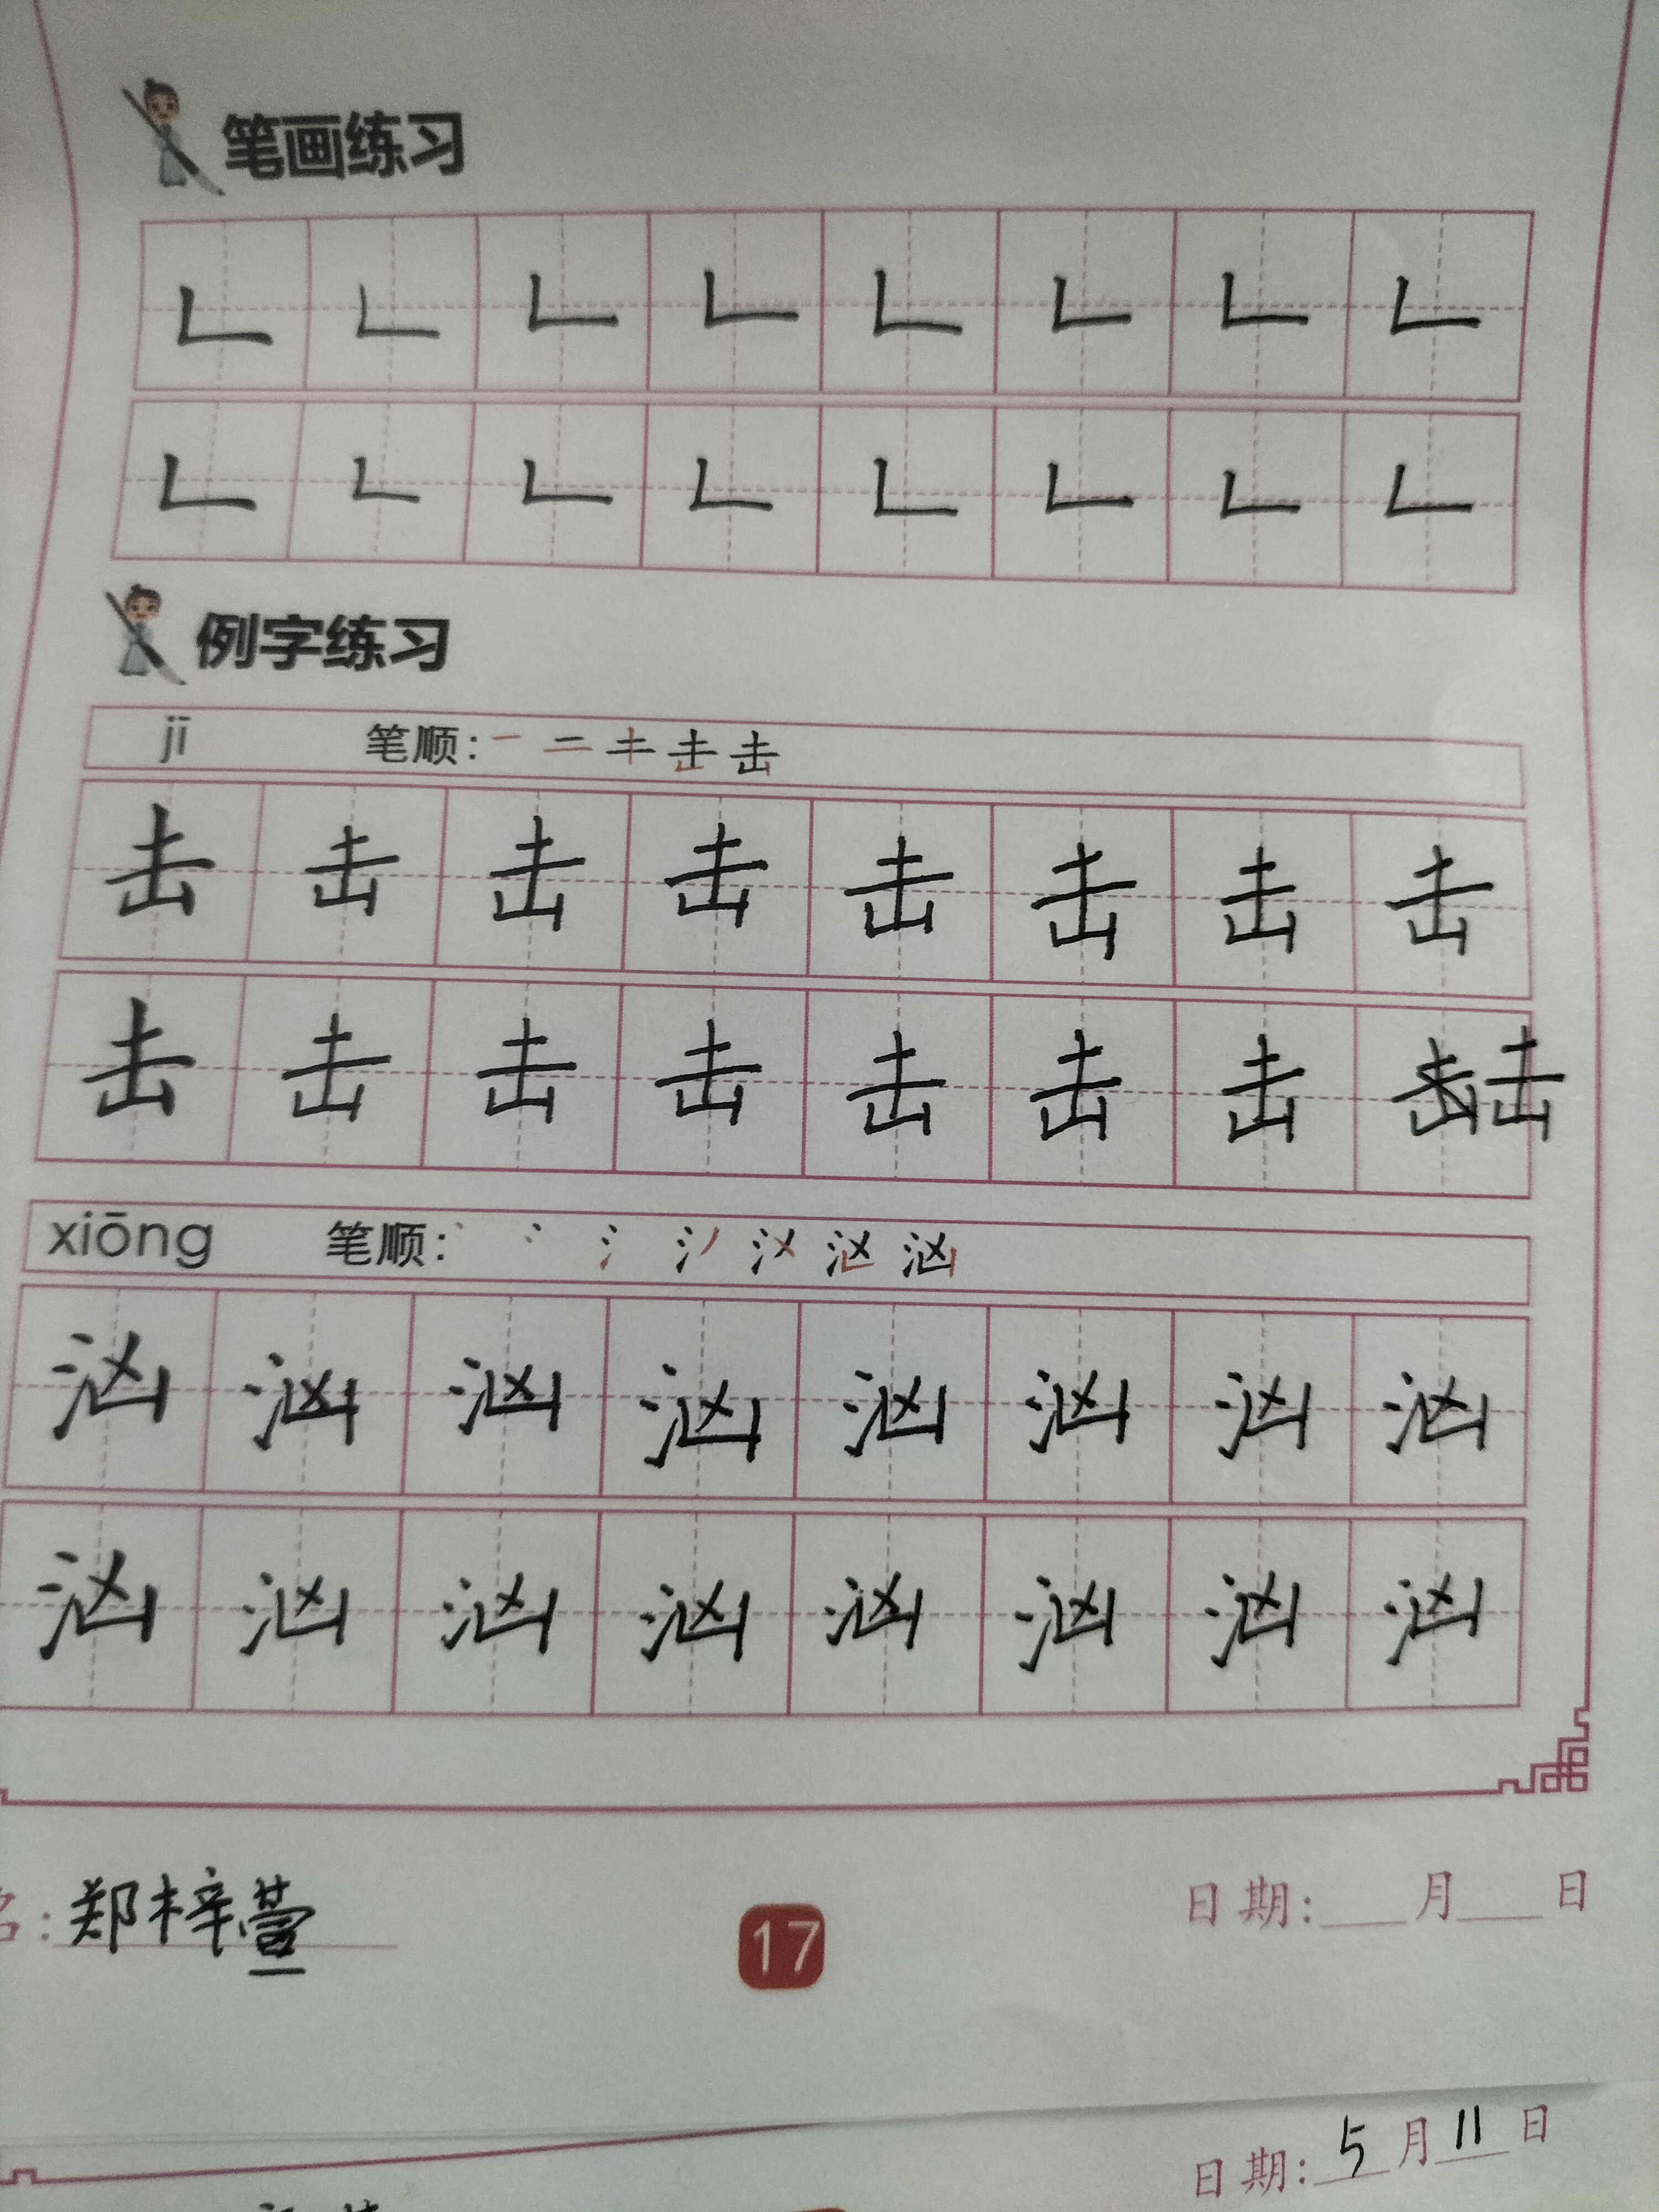 笔画练习
𠃊 𠃊 𠃊 𠃊 𠃊 𠃊 𠃊 𠃊
𠃊 𠃊 𠃊 𠃊 𠃊 𠃊 𠃊 𠃊
例字练习
jī 笔顺:
击 击 击 击 击 击 击 击
击 击 击 击 击 击 击 击
xiōng 笔顺:
汹 汹 汹 汹 汹 汹 汹 汹
汹 汹 汹 汹 汹 汹 汹 汹
名:郑梓萱
17
日期:___月___日
日期:5月11日